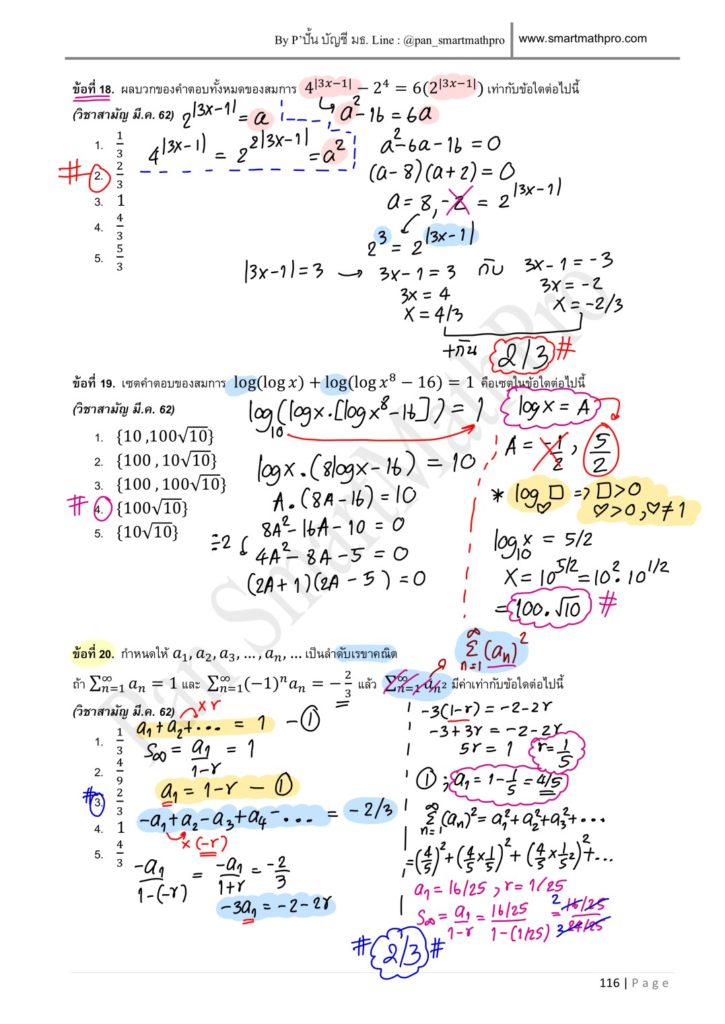 By P'ปั้น บัญชี มธ. Line : @pan_smartmathpro www.smartmathpro.com
ข้อที่ 18. ผลบวกของคำตอบทั้งหมดของสมการ 4^|3x−1| − 2^4 = 6(2^|3x−1|) เท่ากับข้อใดต่อไปนี้
(วิชาสามัญ มี.ค. 62) 2^|3x−1| = a
a² − 16 = 6a
4^|3x−1| = 2^2|3x−1| = a²
1. 1/3
# 2. 2/3
3. 1
4. 4/3
5. 5/3
a² − 6a − 16 = 0
(a − 8)(a + 2) = 0
a = 8, −2 = 2^|3x−1|
2^3 = 2^|3x−1|
|3x−1| = 3 → 3x − 1 = 3 กับ 3x − 1 = −3
3x = 4 3x = −2
x = 4/3 x = −2/3
+กัน 2/3 #
ข้อที่ 19. เซตคำตอบของสมการ log(log x) + log(log x⁸ − 16) = 1 คือเซตในข้อใดต่อไปนี้
(วิชาสามัญ มี.ค. 62)
1. {10 ,100√10}
2. {100 , 10√10}
3. {100 , 100√10}
# 4. {100√10}
5. {10√10}
log₁₀(logx·[logx⁸−16]) = 1
logx·(8logx − 16) = 10
A·(8A − 16) = 10
8A² − 16A − 10 = 0
÷2 4A² − 8A − 5 = 0
(2A + 1)(2A − 5) = 0
logx = A
A = −1/2 , 5/2
* log♡□ => □>0
♡>0 , ♡≠1
log₁₀x = 5/2
x = 10^5/2 = 10²·10^1/2
= 100·√10 #
ข้อที่ 20. กำหนดให้ a₁, a₂, a₃, … , aₙ, … เป็นลำดับเรขาคณิต
∞Σn=1 (aₙ)²
ถ้า ∑∞n=1 aₙ = 1 และ ∑∞n=1(−1)ⁿaₙ = −2/3 แล้ว ∑∞n=1 aₙ² มีค่าเท่ากับข้อใดต่อไปนี้
(วิชาสามัญ มี.ค. 62)
1. 1/3
2. 4/9
# 3. 2/3
4. 1
5. 4/3
×r
a₁ + a₂ + ··· = 1 − ①
S∞ = a₁/(1−r) = 1
a₁ = 1 − r − ①
−a₁ + a₂ − a₃ + a₄ − ··· = −2/3
×(−r)
−a₁/(1−(−r)) = −a₁/(1+r) = −2/3
−3a₁ = −2 − 2r
−3(1−r) = −2 − 2r
−3 + 3r = −2 − 2r
5r = 1 r = 1/5
① ; a₁ = 1 − 1/5 = 4/5
∞Σn=1 (aₙ)² = a₁² + a₂² + a₃² + ···
= (4/5)² + (4/5 × 1/5)² + (4/5 × 1/5²)² + ···
a₁ = 16/25 , r = 1/25
S∞ = a₁/(1−r) = (16/25)/(1−(1/25)) = 2 16/25 / 3 24/25
# 2/3 #
Pan SmartMathPro
116 | Page